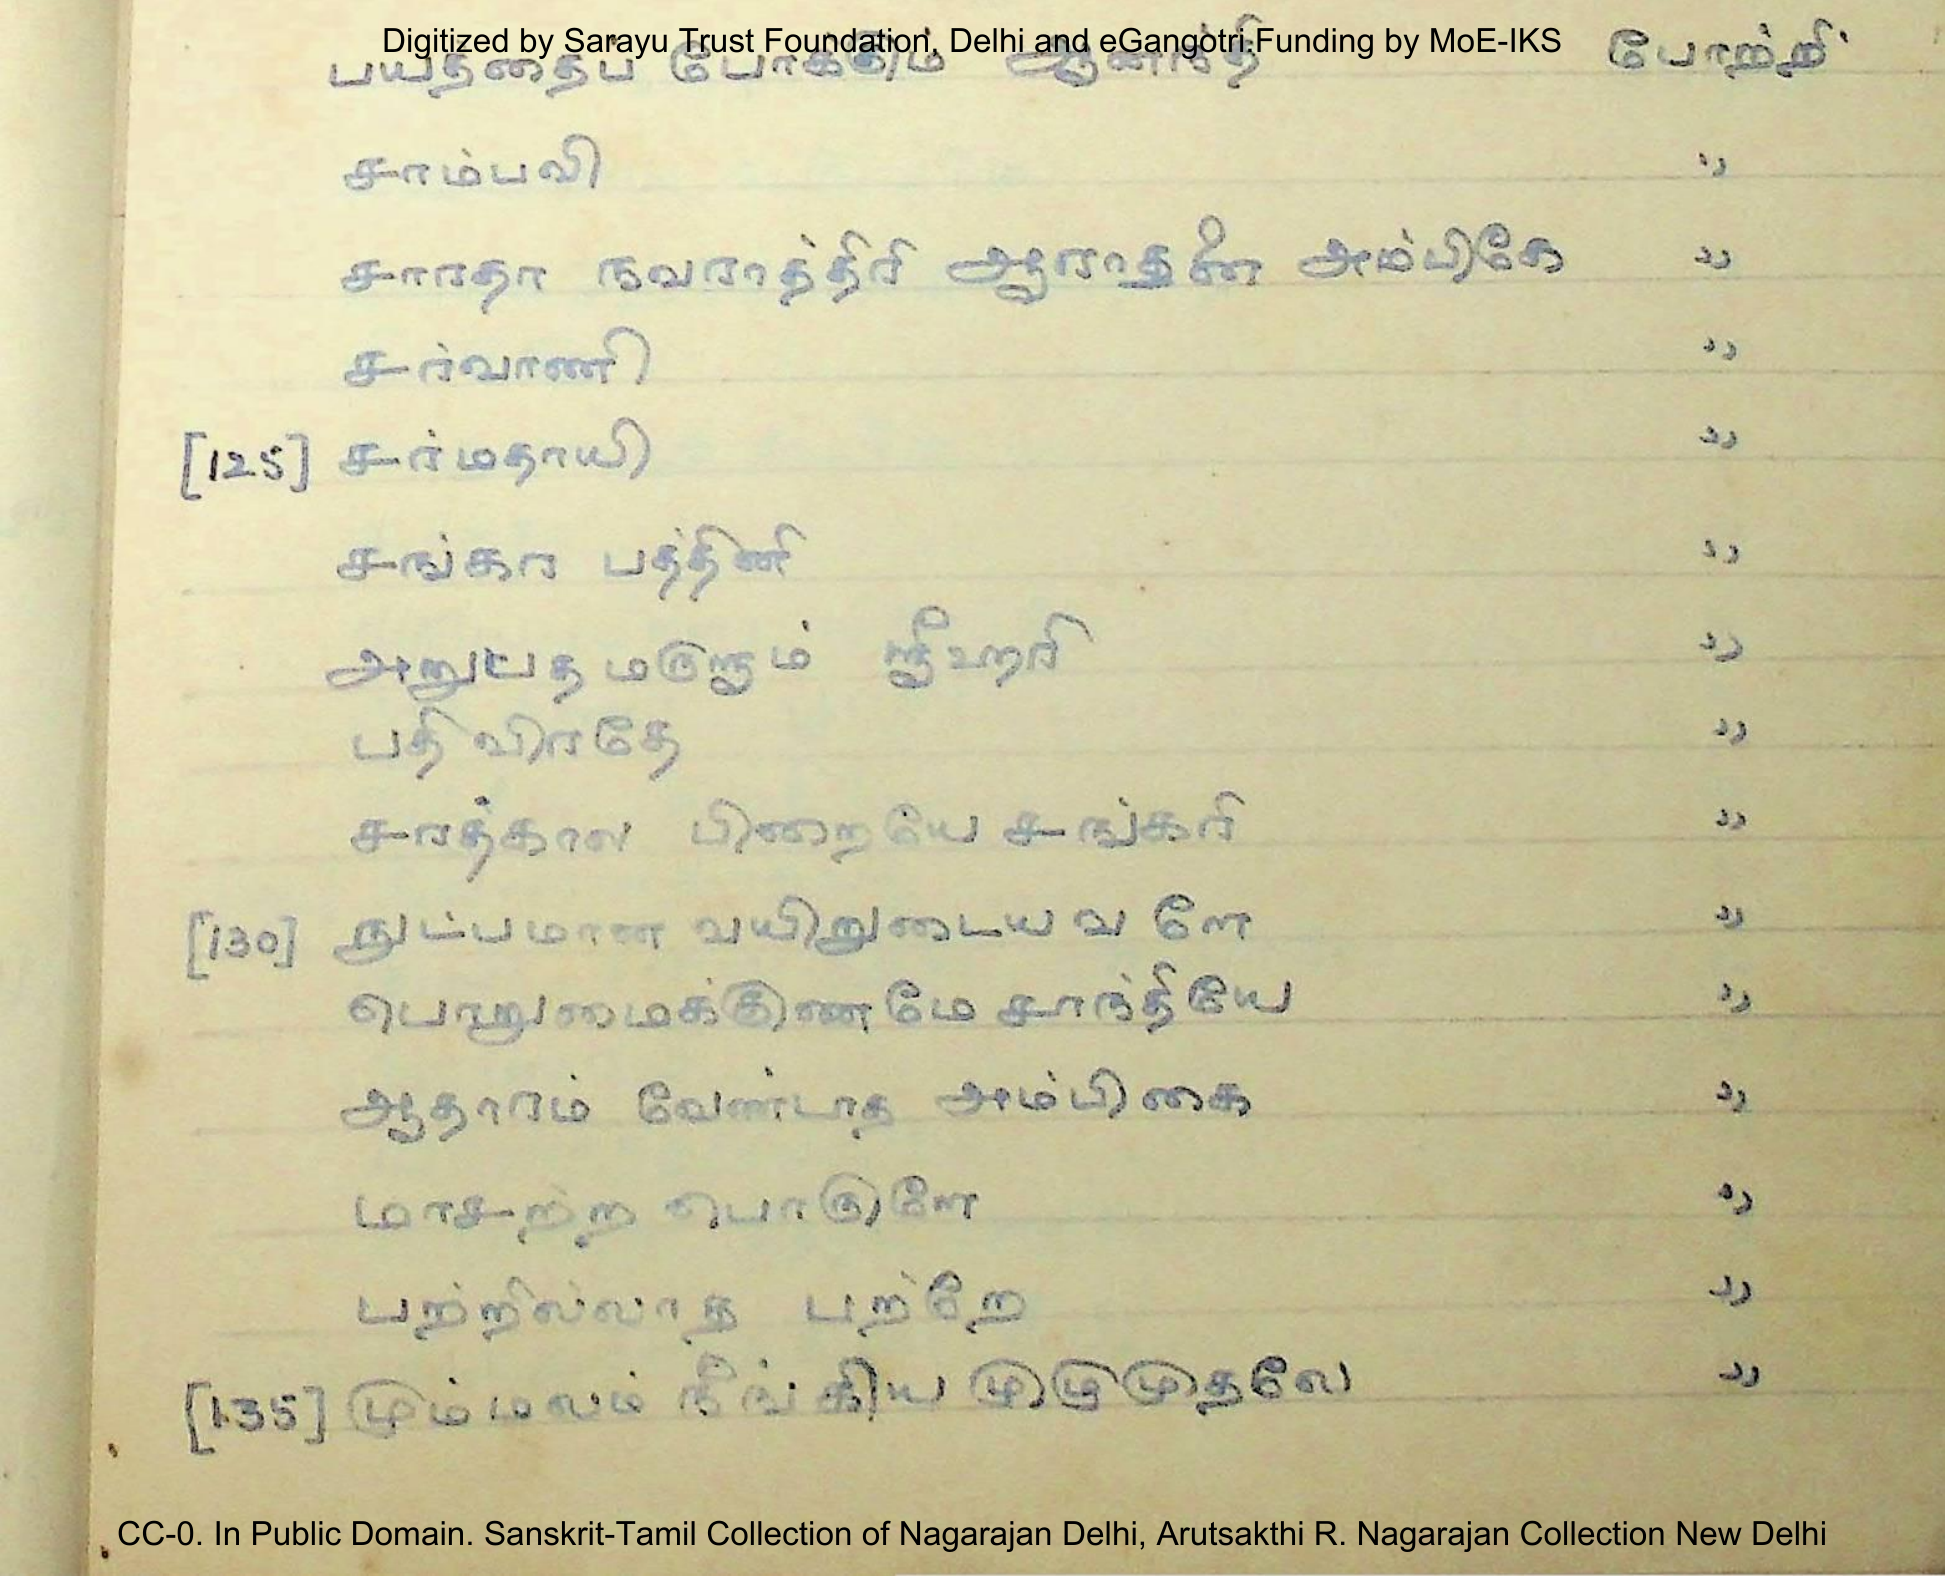 Digitized by Sarayu Trust Foundation, Delhi and eGangotri.Funding by MoE-IKS
பயத்தைப் போக்கும் ஆனந்தி போற்றி
சாம்பவி "
சாரதா நவராத்திரி ஆராதனை அம்பிகே "
சர்வாணி "
[125] சர்மதாயி "
சங்கர பத்தினி "
ஸ்ரீஹரி "
பதி விரதே "
சரத்கால பிறையே சங்கரி "
[130] நுட்பமான வயிறுடைய வளே "
பொறுமைக்குணமே சாந்தியே "
ஆதாரம் வேண்டாத அம்பிகை "
மாசற்ற பொருளே "
பற்றில்லாத பற்றே "
[135] மும்மலம் நீங்கிய முழுமுதலே "
CC-0. In Public Domain. Sanskrit-Tamil Collection of Nagarajan Delhi, Arutsakthi R. Nagarajan Collection New Delhi